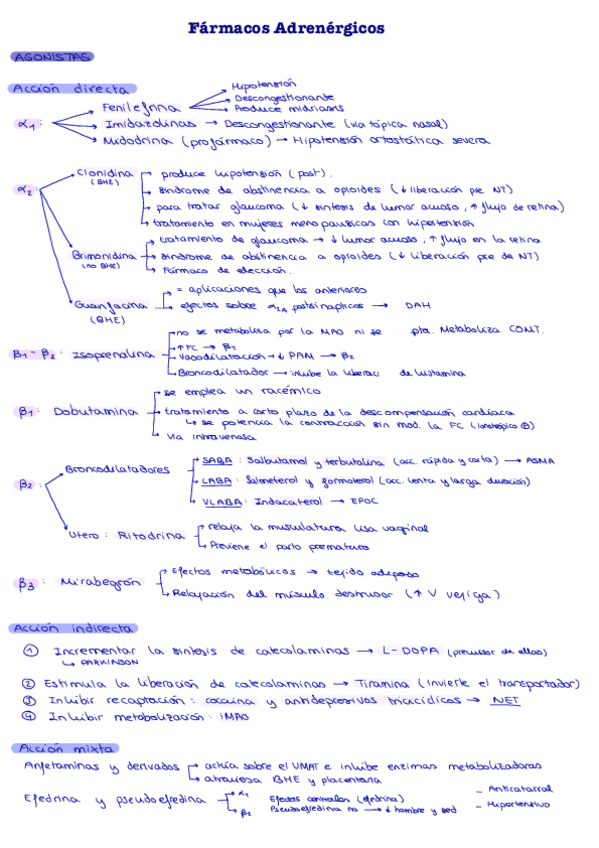 Fármacos Adrenérgicos
AGONISTAS
Acción directa
α1: Fenilefrina → Hipotensión
Descongestionante
Produce midriasis
Imidazolinas → Descongestionante (vía tópica nasal)
Midodrina (profármaco) → Hipotensión ortostática severa
α2: Clonidina (BHE) produce hipotensión (post).
síndrome de abstinencia a opioides (↓ liberación pre NT)
para tratar glaucoma (↓ síntesis de humor acuoso, ↑ flujo de retina)
tratamiento en mujeres menopáusicas con hipertensión
Brimonidina (no BHE) tratamiento de glaucoma → ↓ humor acuoso, ↑ flujo en la retina
síndrome de abstinencia a opioides (↓ liberación pre de NT)
Fármaco de elección.
Guanfacina (BHE) = aplicaciones que los anteriores
efectos sobre α2A postsinápticos → DAH
β1-β2: Isoprenalina no se metaboliza por la MAO ni se pta. Metaboliza COMT.
↑ FC → β1
Vasodilatación → ↓ PAM → β2
Broncodilatador → inhibe la liberac de histamina
β1: Dobutamina se emplea un racémico
tratamiento a corto plazo de la descompensación cardíaca
↳ se potencia la contracción sin mod. la FC (Inotrópico ⊕)
Vía intravenosa
β2: Broncodilatadores SABA: Salbutamol y terbutalina (acc. rápida y corta) → ASMA
LABA: Salmeterol y formoterol (acc. lenta y larga duración)
VLABA: Indacaterol → EPOC
Útero: Ritodrina relaja la musculatura lisa vaginal
Previene el parto prematuro
β3: Mirabegrón Efectos metabólicos → tejido adiposo
Relajación del músculo destrusor (↑ V vejiga)
Acción indirecta
① Incrementar la síntesis de catecolaminas → L-DOPA (precursor de ellas)
↳ PARKINSON
② Estimula la liberación de catecolaminas → Tiramina (invierte el transportador)
③ Inhibir recaptación: cocaína y antidepresivos tricíclicos → NET
④ Inhibir metabolización: iMAO
Acción mixta
Anfetaminas y derivados actúa sobre el VMAT e inhibe enzimas metabolizadoras
atraviesa BHE y placentaria
Efedrina y pseudoefedrina α1 Efectos centrales (efedrina) - Anticatarral
β2 Pseudoefedrina no → ↓ hambre y sed - Hipertensivo